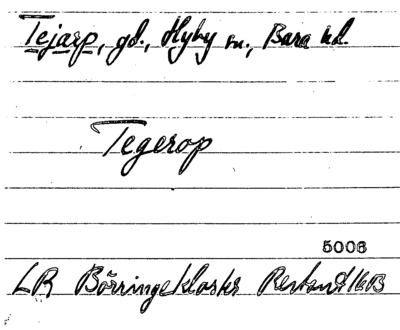 Tejarp, gd., Hyby sn., Bara hd.
Tegerop
5006
LR Börringekloster 16B